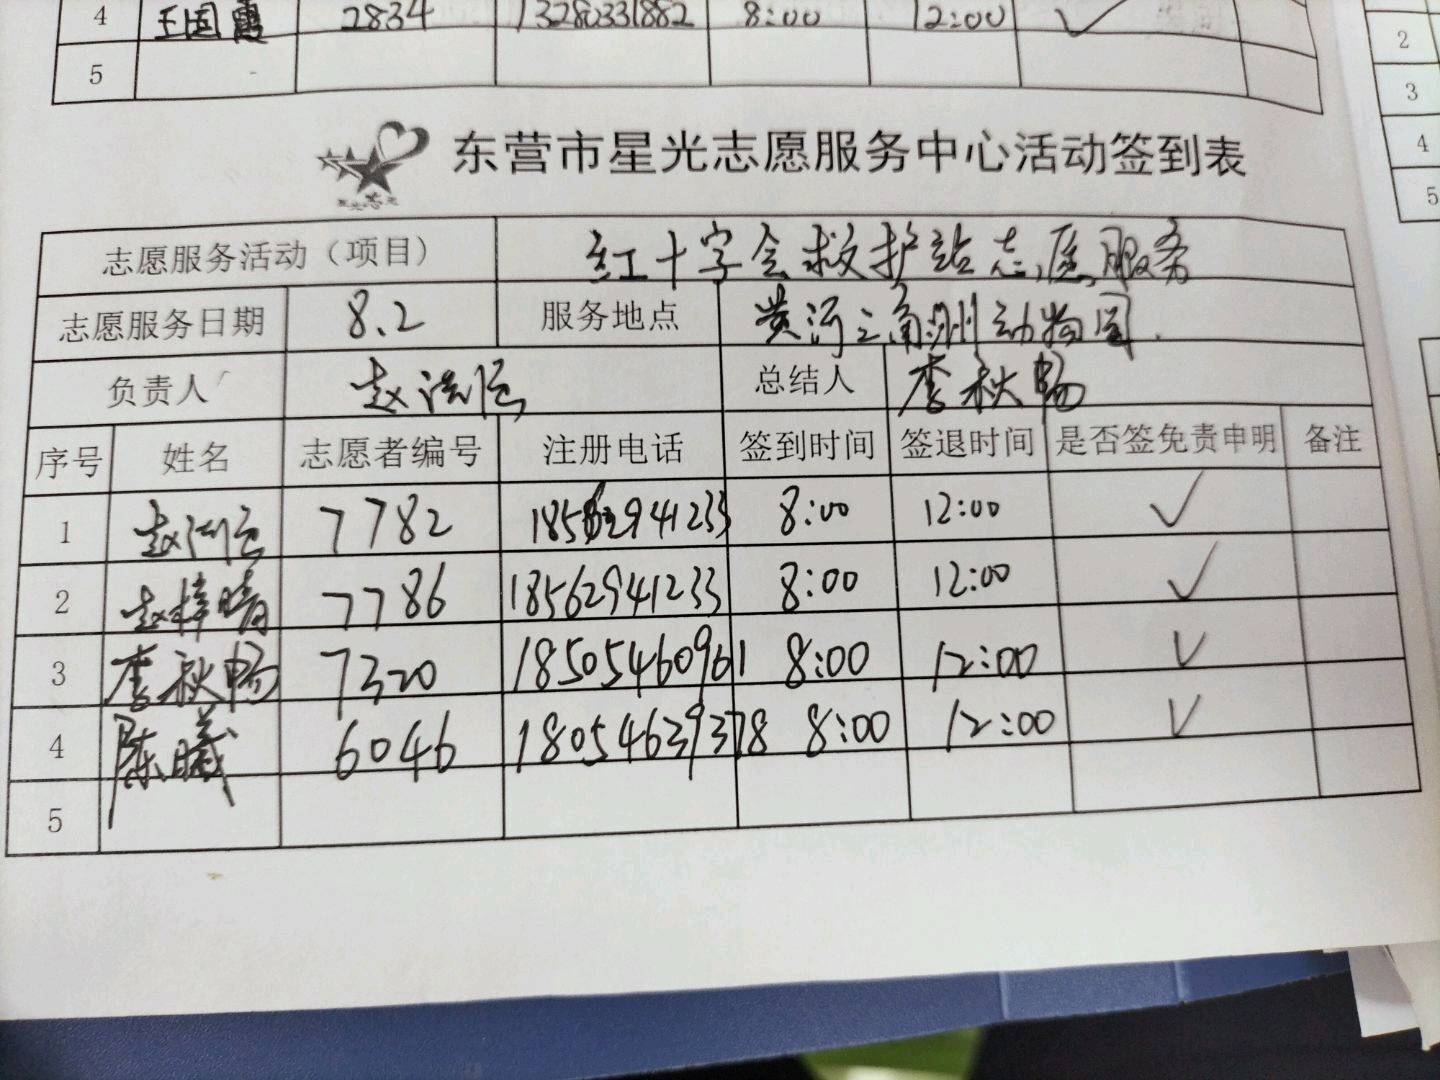 4 王国霞 2834 13280331882 8:00 12:00 ✓
5
东营市星光志愿服务中心活动签到表
志愿服务活动（项目） 红十字会救护站志愿服务
志愿服务日期 8.2 服务地点 黄河三角洲动物园.
负责人 赵 总结人 李秋畅
序号 姓名 志愿者编号 注册电话 签到时间 签退时间 是否签免责申明 备注
1 赵 7782 18562941233 8:00 12:00 ✓
2 赵梓晴 7786 18562941233 8:00 12:00 ✓
3 李秋畅 7320 18505460961 8:00 12:00 ✓
4 陈曦 6046 18054639378 8:00 12:00 ✓
5
2
3
4
5